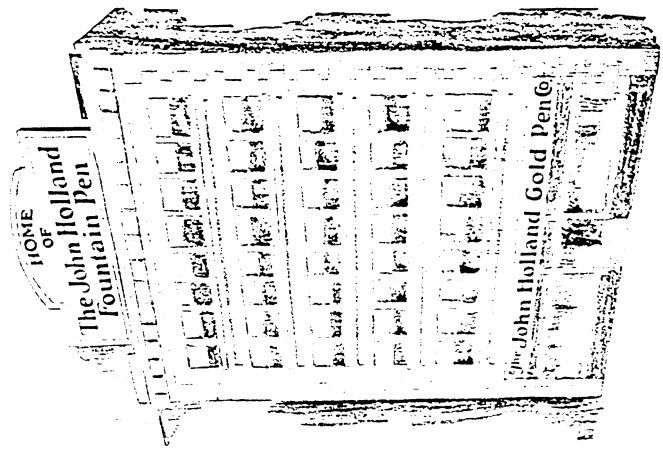 HOME
OF
The John Holland
Fountain Pen
The John Holland Gold Pen Co